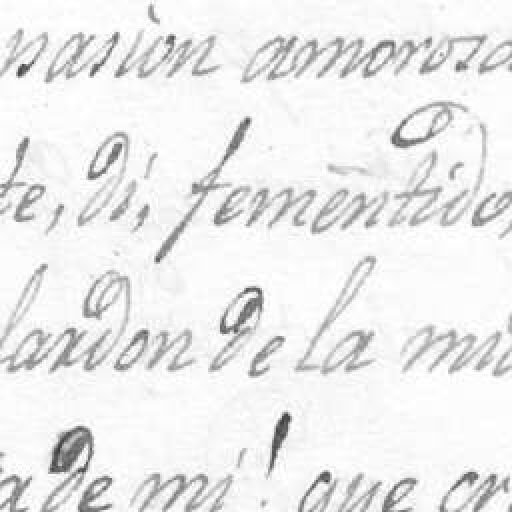 pasion amorosa
te, di, fementido,
lardon de la mu
a de mi! que cr